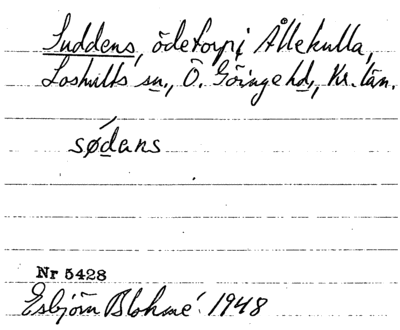 Suddens, ödetorp i Ållekulla,
Loshults sn., Ö. Göinge hd., Kr. län.
sǿdans
Nr 5428
Esbjörn Blohmé. 1948